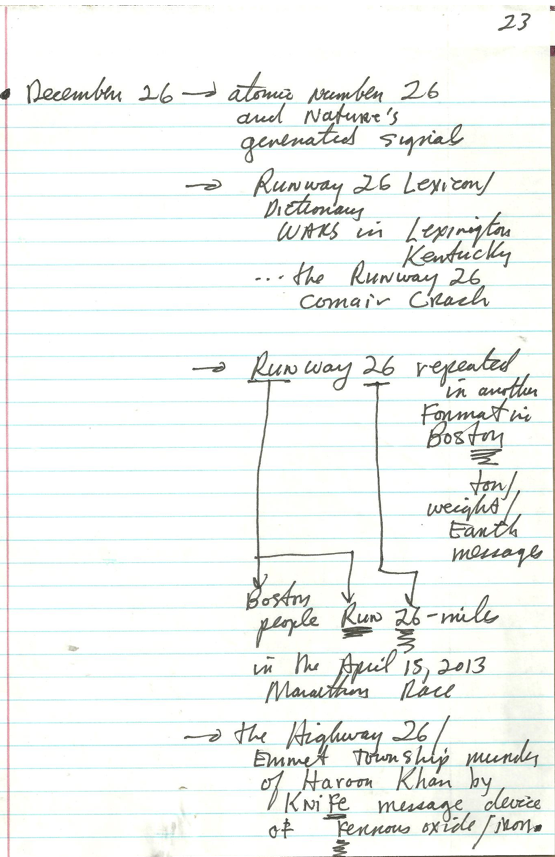 23
• December 26 → atomic number 26
and Nature's
generated signal
→ Runway 26 Lexicon/
Dictionary
WARS in Lexington
Kentucky
... the Runway 26
Comair Crash
→ Runway 26 repeated
in another
Format in
Boston
ton/
weight/
Earth
messages
Boston
people Run 26-miles
in the April 15, 2013
Marathon Race
→ the Highway 26/
Emmet Township murder
of Haroon Khan by
KniFe message device
of Ferrous oxide/iron.